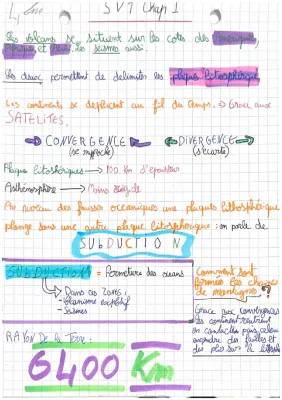 SVT Chap 1
Les volcans se situent sur les cotes des
et Les seismes aussi.
Les deux permettent de délimités les plaques lithosphériques
Les continents se déplacent au fil du temps. → Grace aux
SATELITES.
CONVERGENCE ↔ DIVERGENCE
(se rapproche) (s'écarte)
Plaques litosphériques → 100 Km d'épaisseur
Asthénosphère → Moins rigide
Au niveau des fosses oceaniques une plaque lithosphérique
plonge sous une autre plaque litospherique : on parle de
SUBDUCTION
SUBDUCTION = Fermeture des oceans
→ Dans ces zones :
- Volcanisme explosif
- Seismes
Comment sont
formées les chaines
de montagnes ?
Grace aux convergences
les continents rentrent
en contact puis cela
engendre des failles et
des plis sur la
RAYON De la Terre :
6400 Km